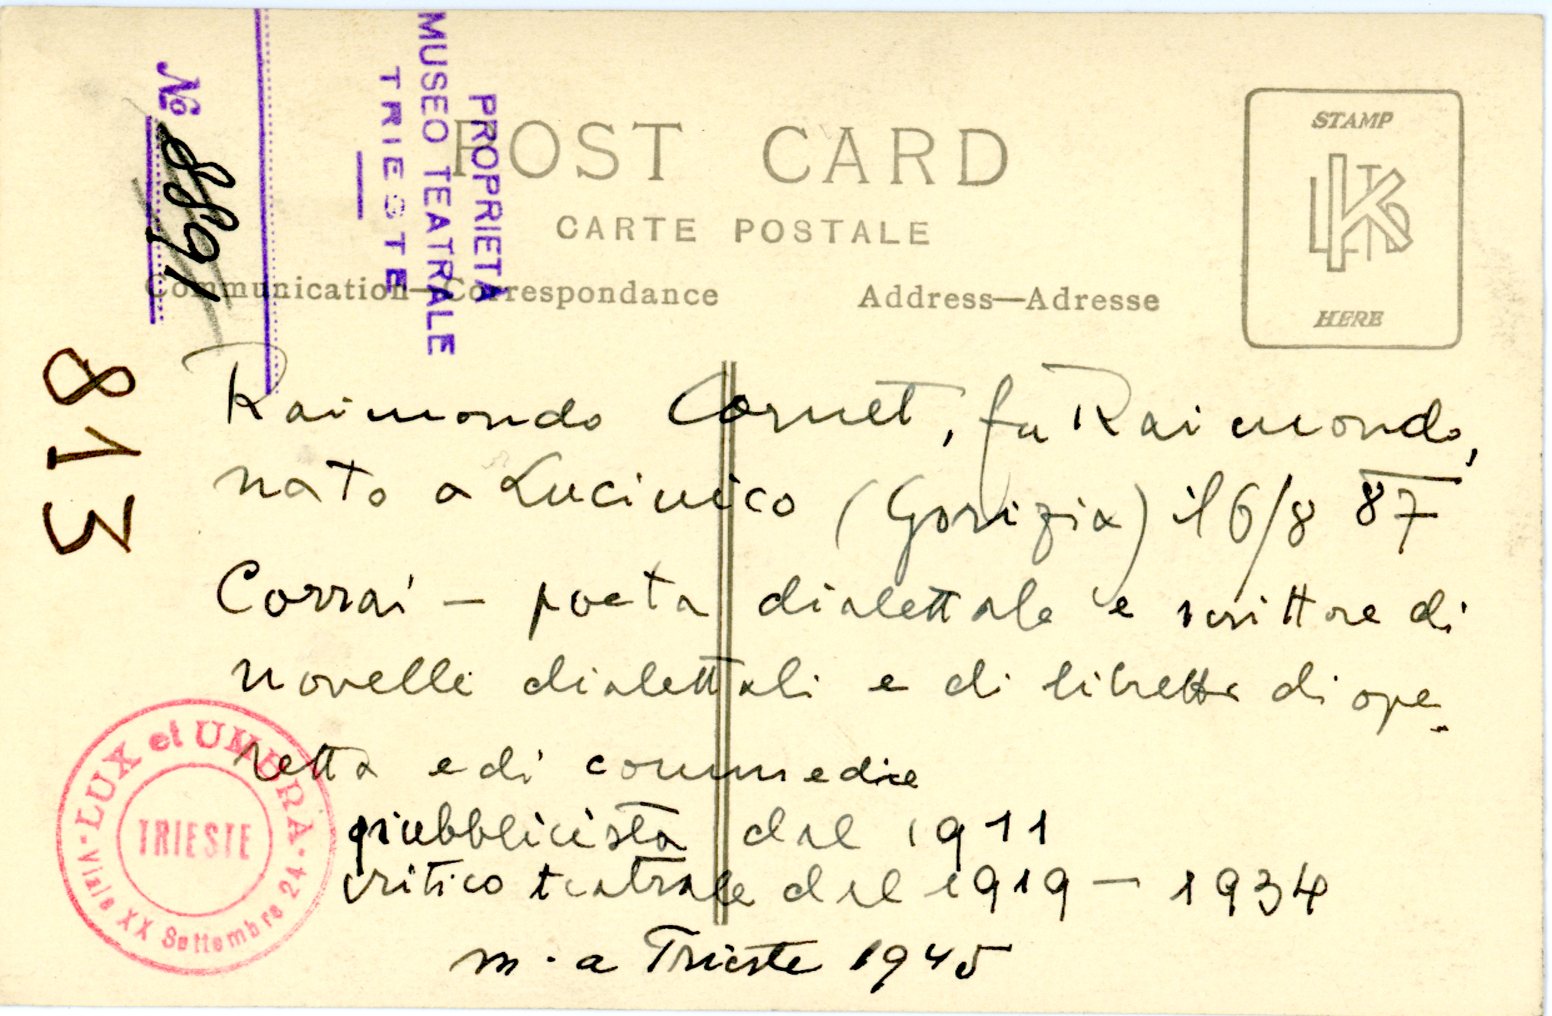 PROPRIETÀ
MUSEO TEATRALE
TRIESTE
№ 8891
813
POST CARD
CARTE POSTALE
Communication—Correspondance
Address—Adresse
STAMP
HERE
Raimondo Cornet, fu Raimondo,
nato a Lucinico (Gorizia) il 6/8 87
Corrai — poeta dialettale e scrittore di
novelle dialettali e di libretti di ope
retta e di commedie
pubblicista dal 1911
critico teatrale dal 1919 — 1934
m. a Trieste 1945
LUX et UMBRA
TRIESTE
Viale XX Settembre 24